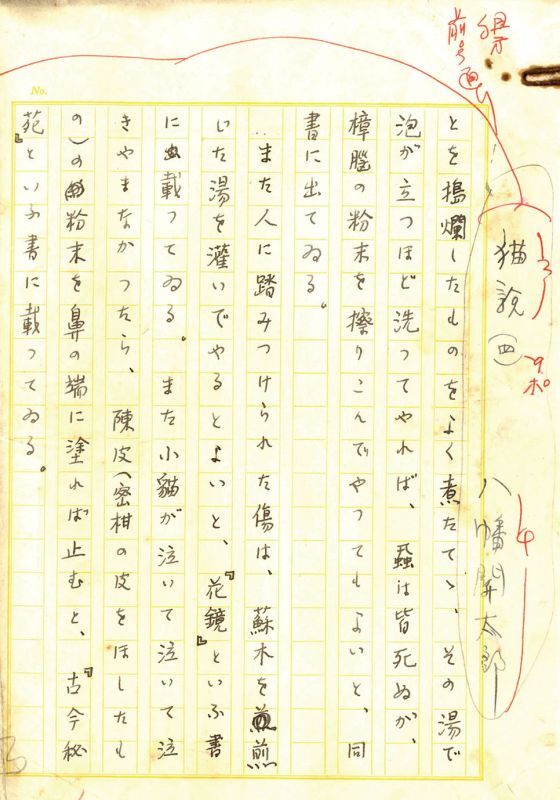 猫説（四）　八幡関太郎
とを搗爛したものをよく煮たてゝ、その湯で
泡が立つほど洗つてやれば、蝨は皆死ぬが、
樟腦の粉末を擦りこんでやつてもよいと、同
書に出てゐる。
また人に踏みつけられた傷は、蘇木を煎
じた湯を灌いでやるとよいと、『花鏡』といふ書
に載つてゐる。また小貓が泣いて泣いて泣
きやまなかつたら、陳皮（密柑の皮をほしたも
の）の粉末を鼻の端に塗れば止むと、『古今秘
苑』といふ書に載つてゐる。
No.